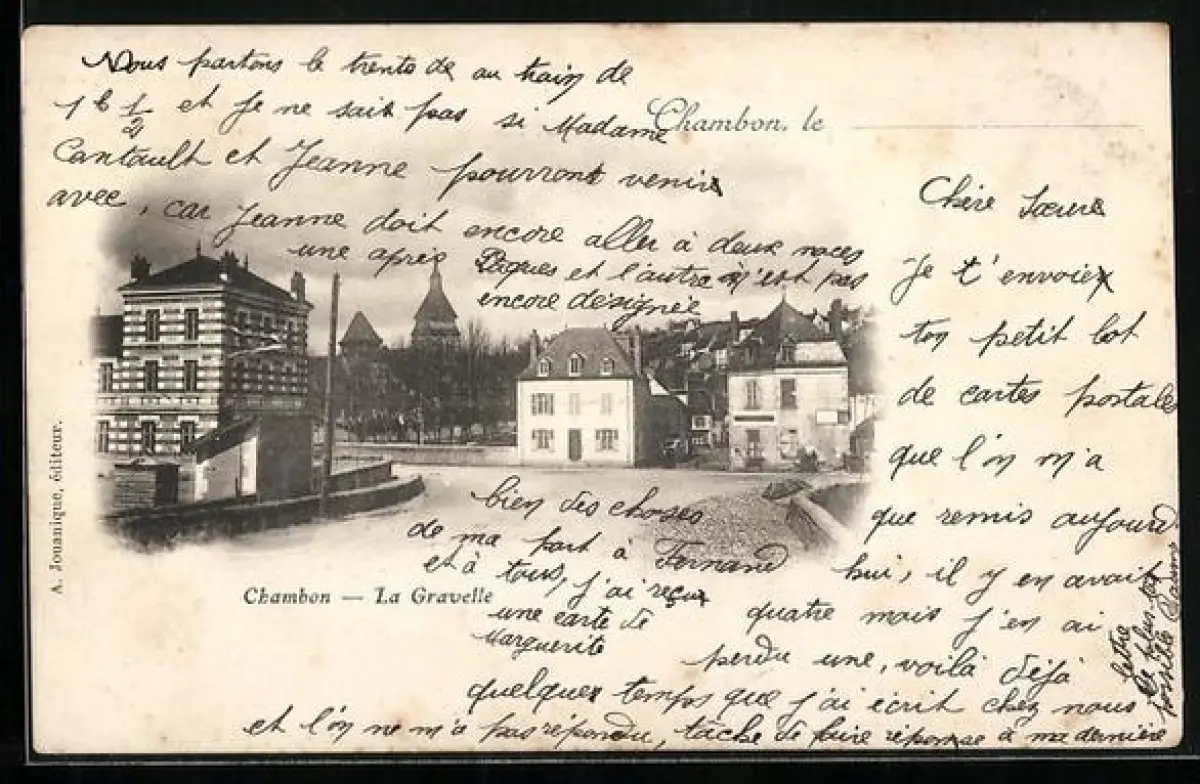 Chambon, le
Chère Sœure
Je t'envoiex
ton petit lot
de cartes postales
que l'on m'a
que remis aujourd
hui, il y en avait
quatre mais j'en ai
perdu une, voilà déjà
quelques temps que j'ai écrit chez nous
et l'on ne m'a pas répondu, tâche de faire réponse à ma dernière
lettre
le plus tôt
possible
Nous partons le trente de au train de
1 h ½ et je ne sait pas si Madame
Cantault et Jeanne pourront venir
avec, car Jeanne doit encore aller à deux noces
une après Pâques et l'autre n'est pas
encore désignée
bien des choses
de ma part à Fernand
et à tous, j'ai reçu
une carte de
Marguerite
Chambon — La Gravelle
A. Jouanique, éditeur.